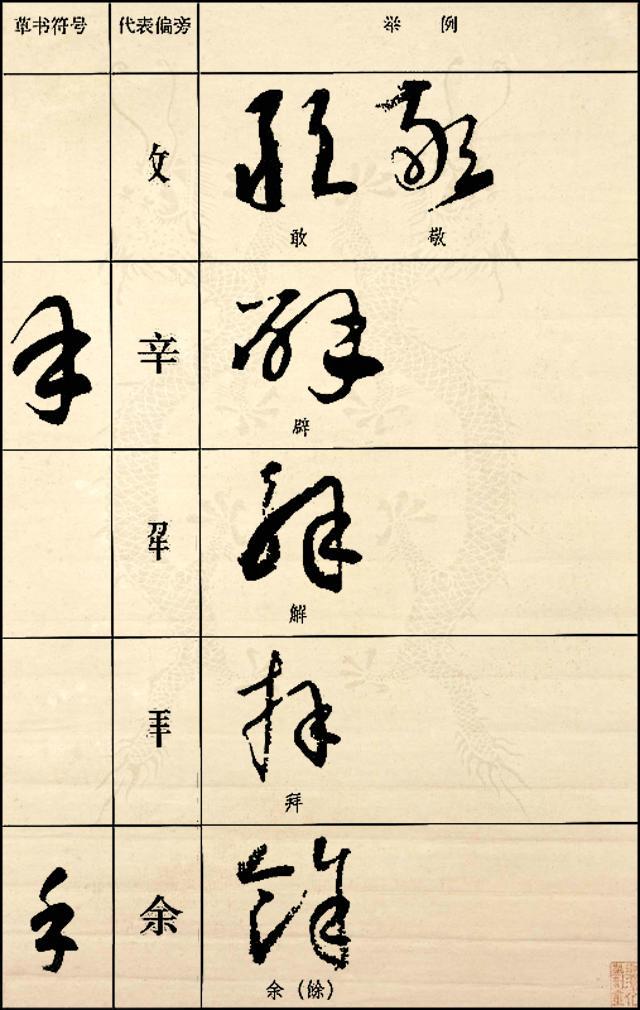 草书符号 代表偏旁 举例
攵 敢 敬
辛 辟
解
拜
余 余（餘）